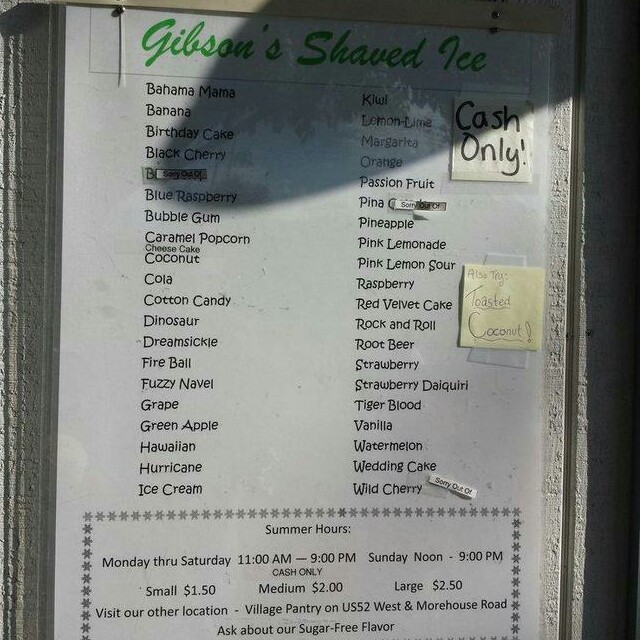 Gibson's Shaved Ice
Bahama Mama
Banana
Birthday Cake
Black Cherry
B Sorry Out Of
Blue Raspberry
Bubble Gum
Caramel Popcorn
Cheese Cake
Coconut
Cola
Cotton Candy
Dinosaur
Dreamsickle
Fire Ball
Fuzzy Navel
Grape
Green Apple
Hawaiian
Hurricane
Ice Cream
Kiwi
Lemon-Lime
Margarita
Orange
Passion Fruit
Pina C Sorry Out Of
Pineapple
Pink Lemonade
Pink Lemon Sour
Raspberry
Red Velvet Cake
Rock and Roll
Root Beer
Strawberry
Strawberry Daiquiri
Tiger Blood
Vanilla
Watermelon
Wedding Cake
Wild Cherry Sorry Out Of
Cash
Only!
Also Try:
Toasted
Coconut!
Summer Hours:
Monday thru Saturday 11:00 AM — 9:00 PM Sunday Noon - 9:00 PM
CASH ONLY
Small $1.50 Medium $2.00 Large $2.50
Visit our other location - Village Pantry on US52 West & Morehouse Road
Ask about our Sugar-Free Flavor